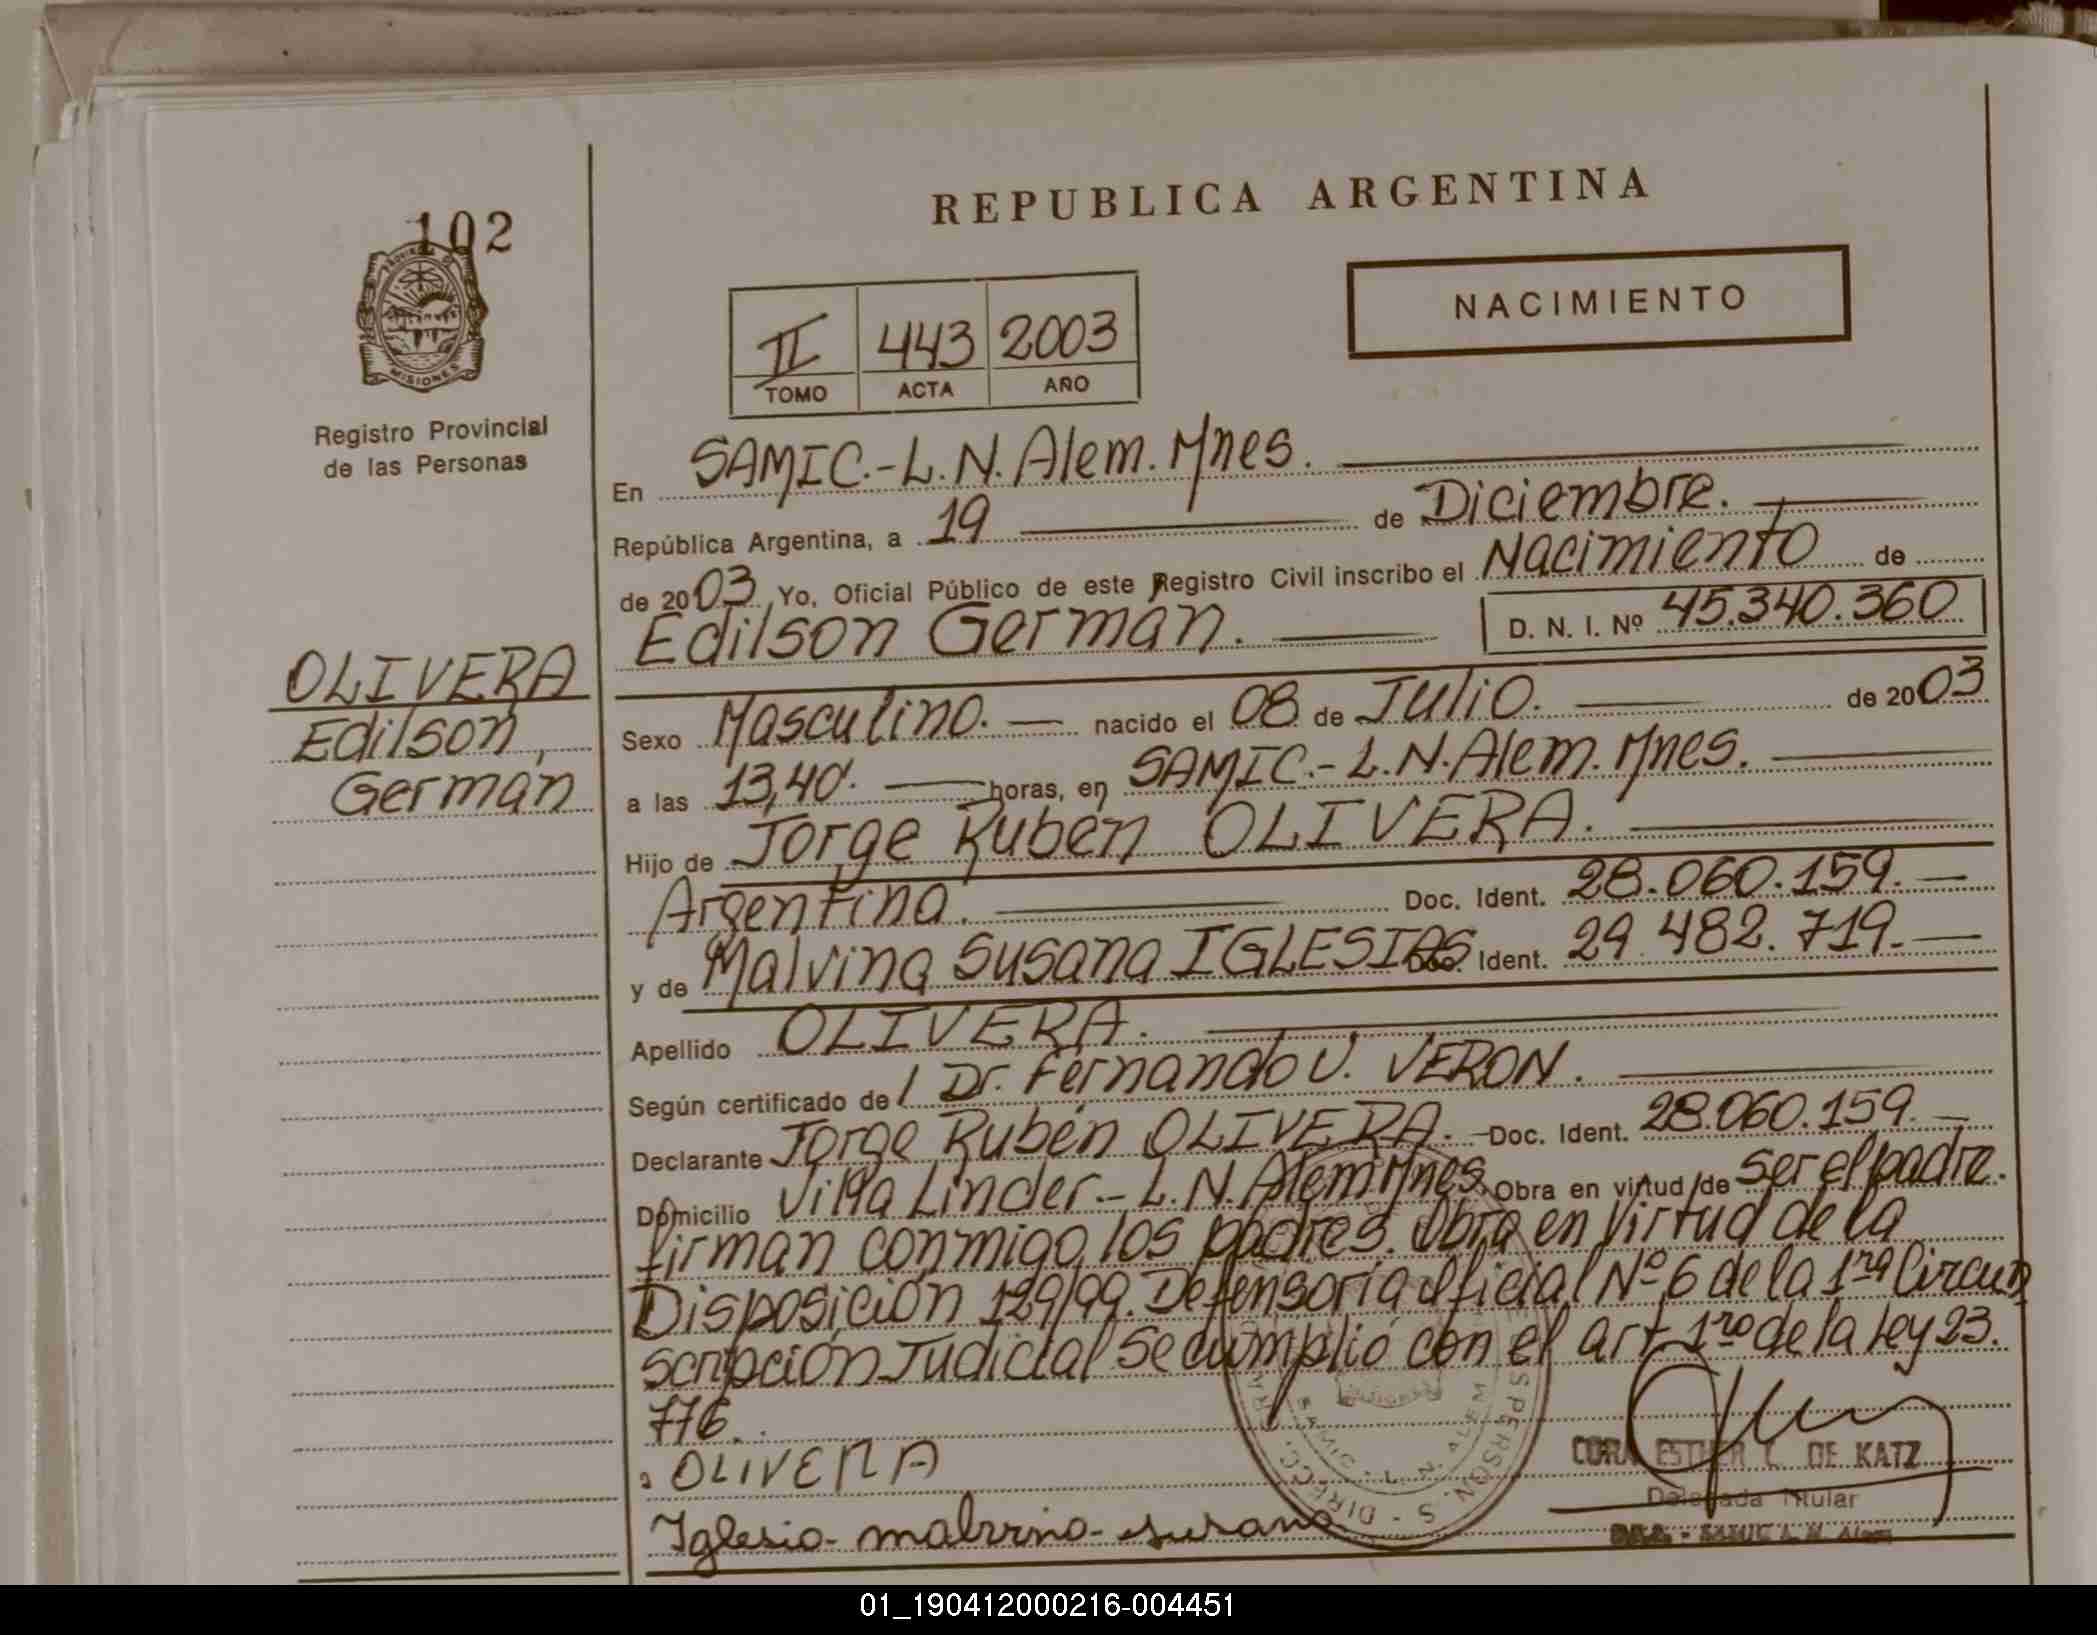 102
MISIONES
Registro Provincial
de las Personas
OLIVERA
Edilson
German
REPUBLICA ARGENTINA
NACIMIENTO
II 443 2003
TOMO ACTA AÑO
En SAMIC.-L.N.Alem.Mnes.
República Argentina, a 19 de Diciembre.
de 2003 Yo, Oficial Público de este Registro Civil inscribo el Nacimiento de
Edilson German. D. N. I. Nº 45.340.360
Sexo Masculino. nacido el 08 de Julio. de 2003
a las 13,40. horas, en SAMIC.-L.N.Alem.Mnes.
Hijo de Jorge Ruben OLIVERA.
Argentina. Doc. Ident. 28.060.159.
y de Malvina Susana IGLESIAS Doc. Ident. 29.482.719.
Apellido OLIVERA.
Según certificado de / Dr. Fernando V. VERON.
Declarante Jorge Rubén OLIVERA. Doc. Ident. 28.060.159.
Domicilio Villa Linder.-L.N.Alem Mnes. Obra en virtud de ser el padre.
firman conmigo los padres. Obra en Virtud de la
Disposición 129/99. Defensoría Oficial Nº 6 de la 1ra Circun
scripción Judicial Se cumplió con el art 1ro de la Ley 23.
776.
OLIVERA
Iglesia malvina susana
CORA ESTHER L. DE KATZ
Delegada Titular
01_190412000216-004451